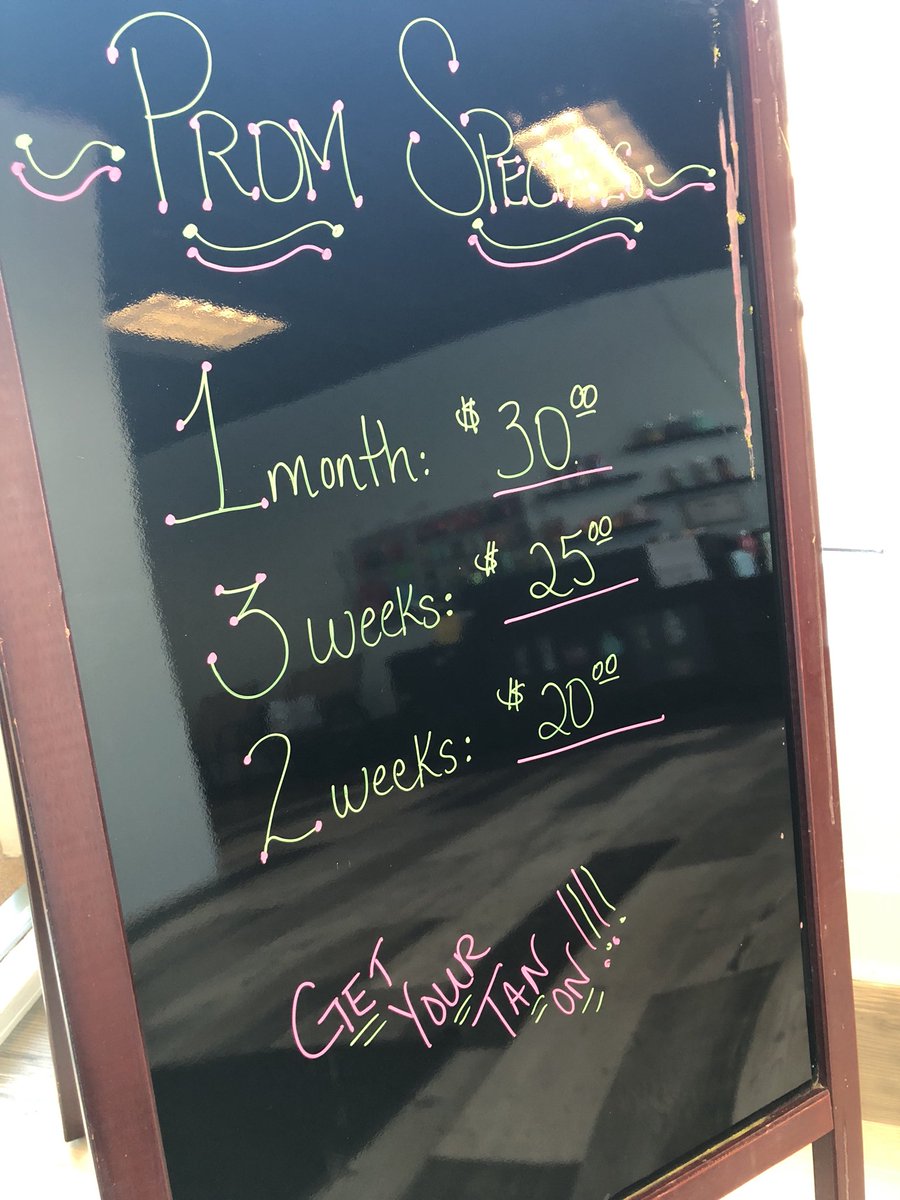 PROM SPECIALS
1 month: $30.00
3 weeks: $25.00
2 weeks: $20.00
GET YOUR TAN ON!!!!